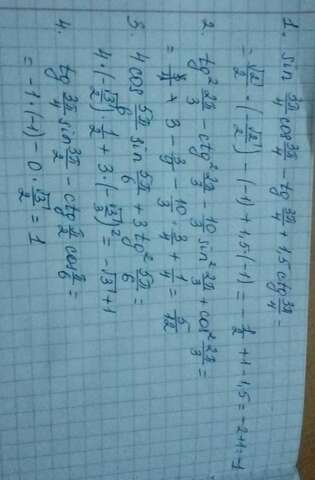 1. sin 3π/4 cos 3π/4 - tg 3π/4 + 1,5 ctg 3π/4 =
= √2/2 · (-√2/2) - (-1) + 1,5·(-1) = -1/2 + 1 - 1,5 = -2+1 = -1
2. tg² 2π/3 - ctg² 2π/3 - 10/3 sin² 2π/3 + cos² 2π/3 =
+ 3 - - 10/3 · 3/4 + 1/4 = 5/12
3. 4 cos 5π/6 sin 5π/6 + 3 tg² 5π/6 =
4·(-√3/2)·1/2 + 3·(-√3/3)² = -√3+1
4. tg 3π/4 sin 3π/2 - ctg π/2 cos π/6 =
= -1·(-1) - 0·√3/2 = 1